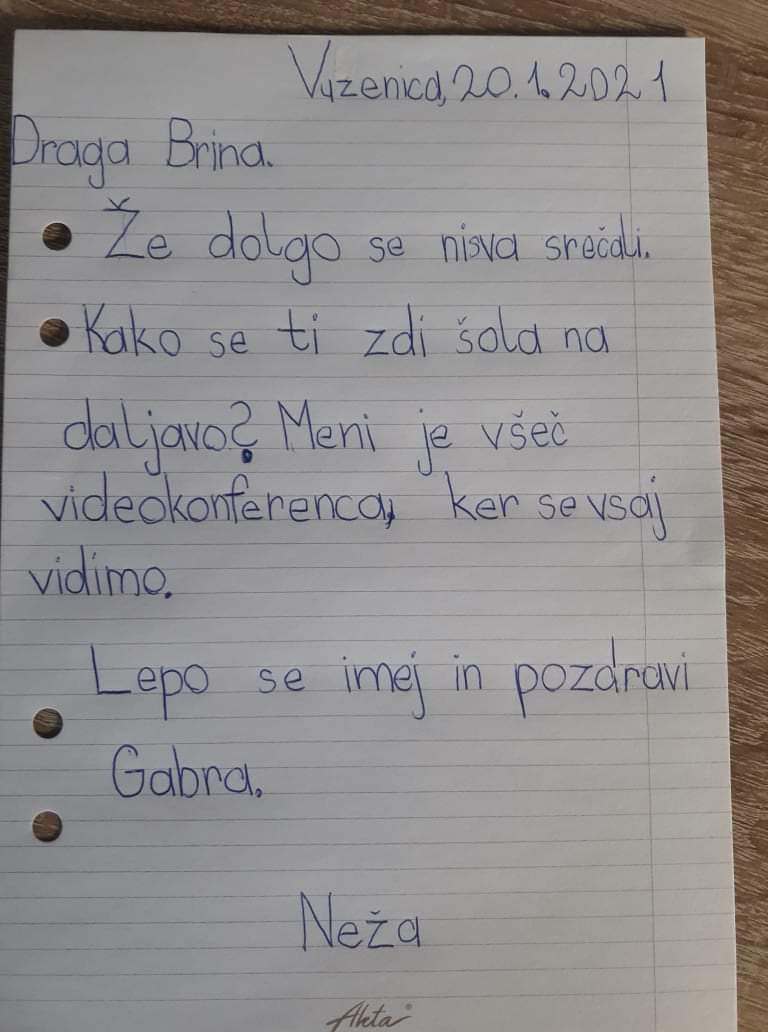 Vuzenica, 20.1.2021
Draga Brina.
Že dolgo se nisva srečali.
Kako se ti zdi šola na
daljavo? Meni je všeč
videokonferenca, ker se vsaj
vidimo.
Lepo se imej in pozdravi
Gabra.
Neža
Akta